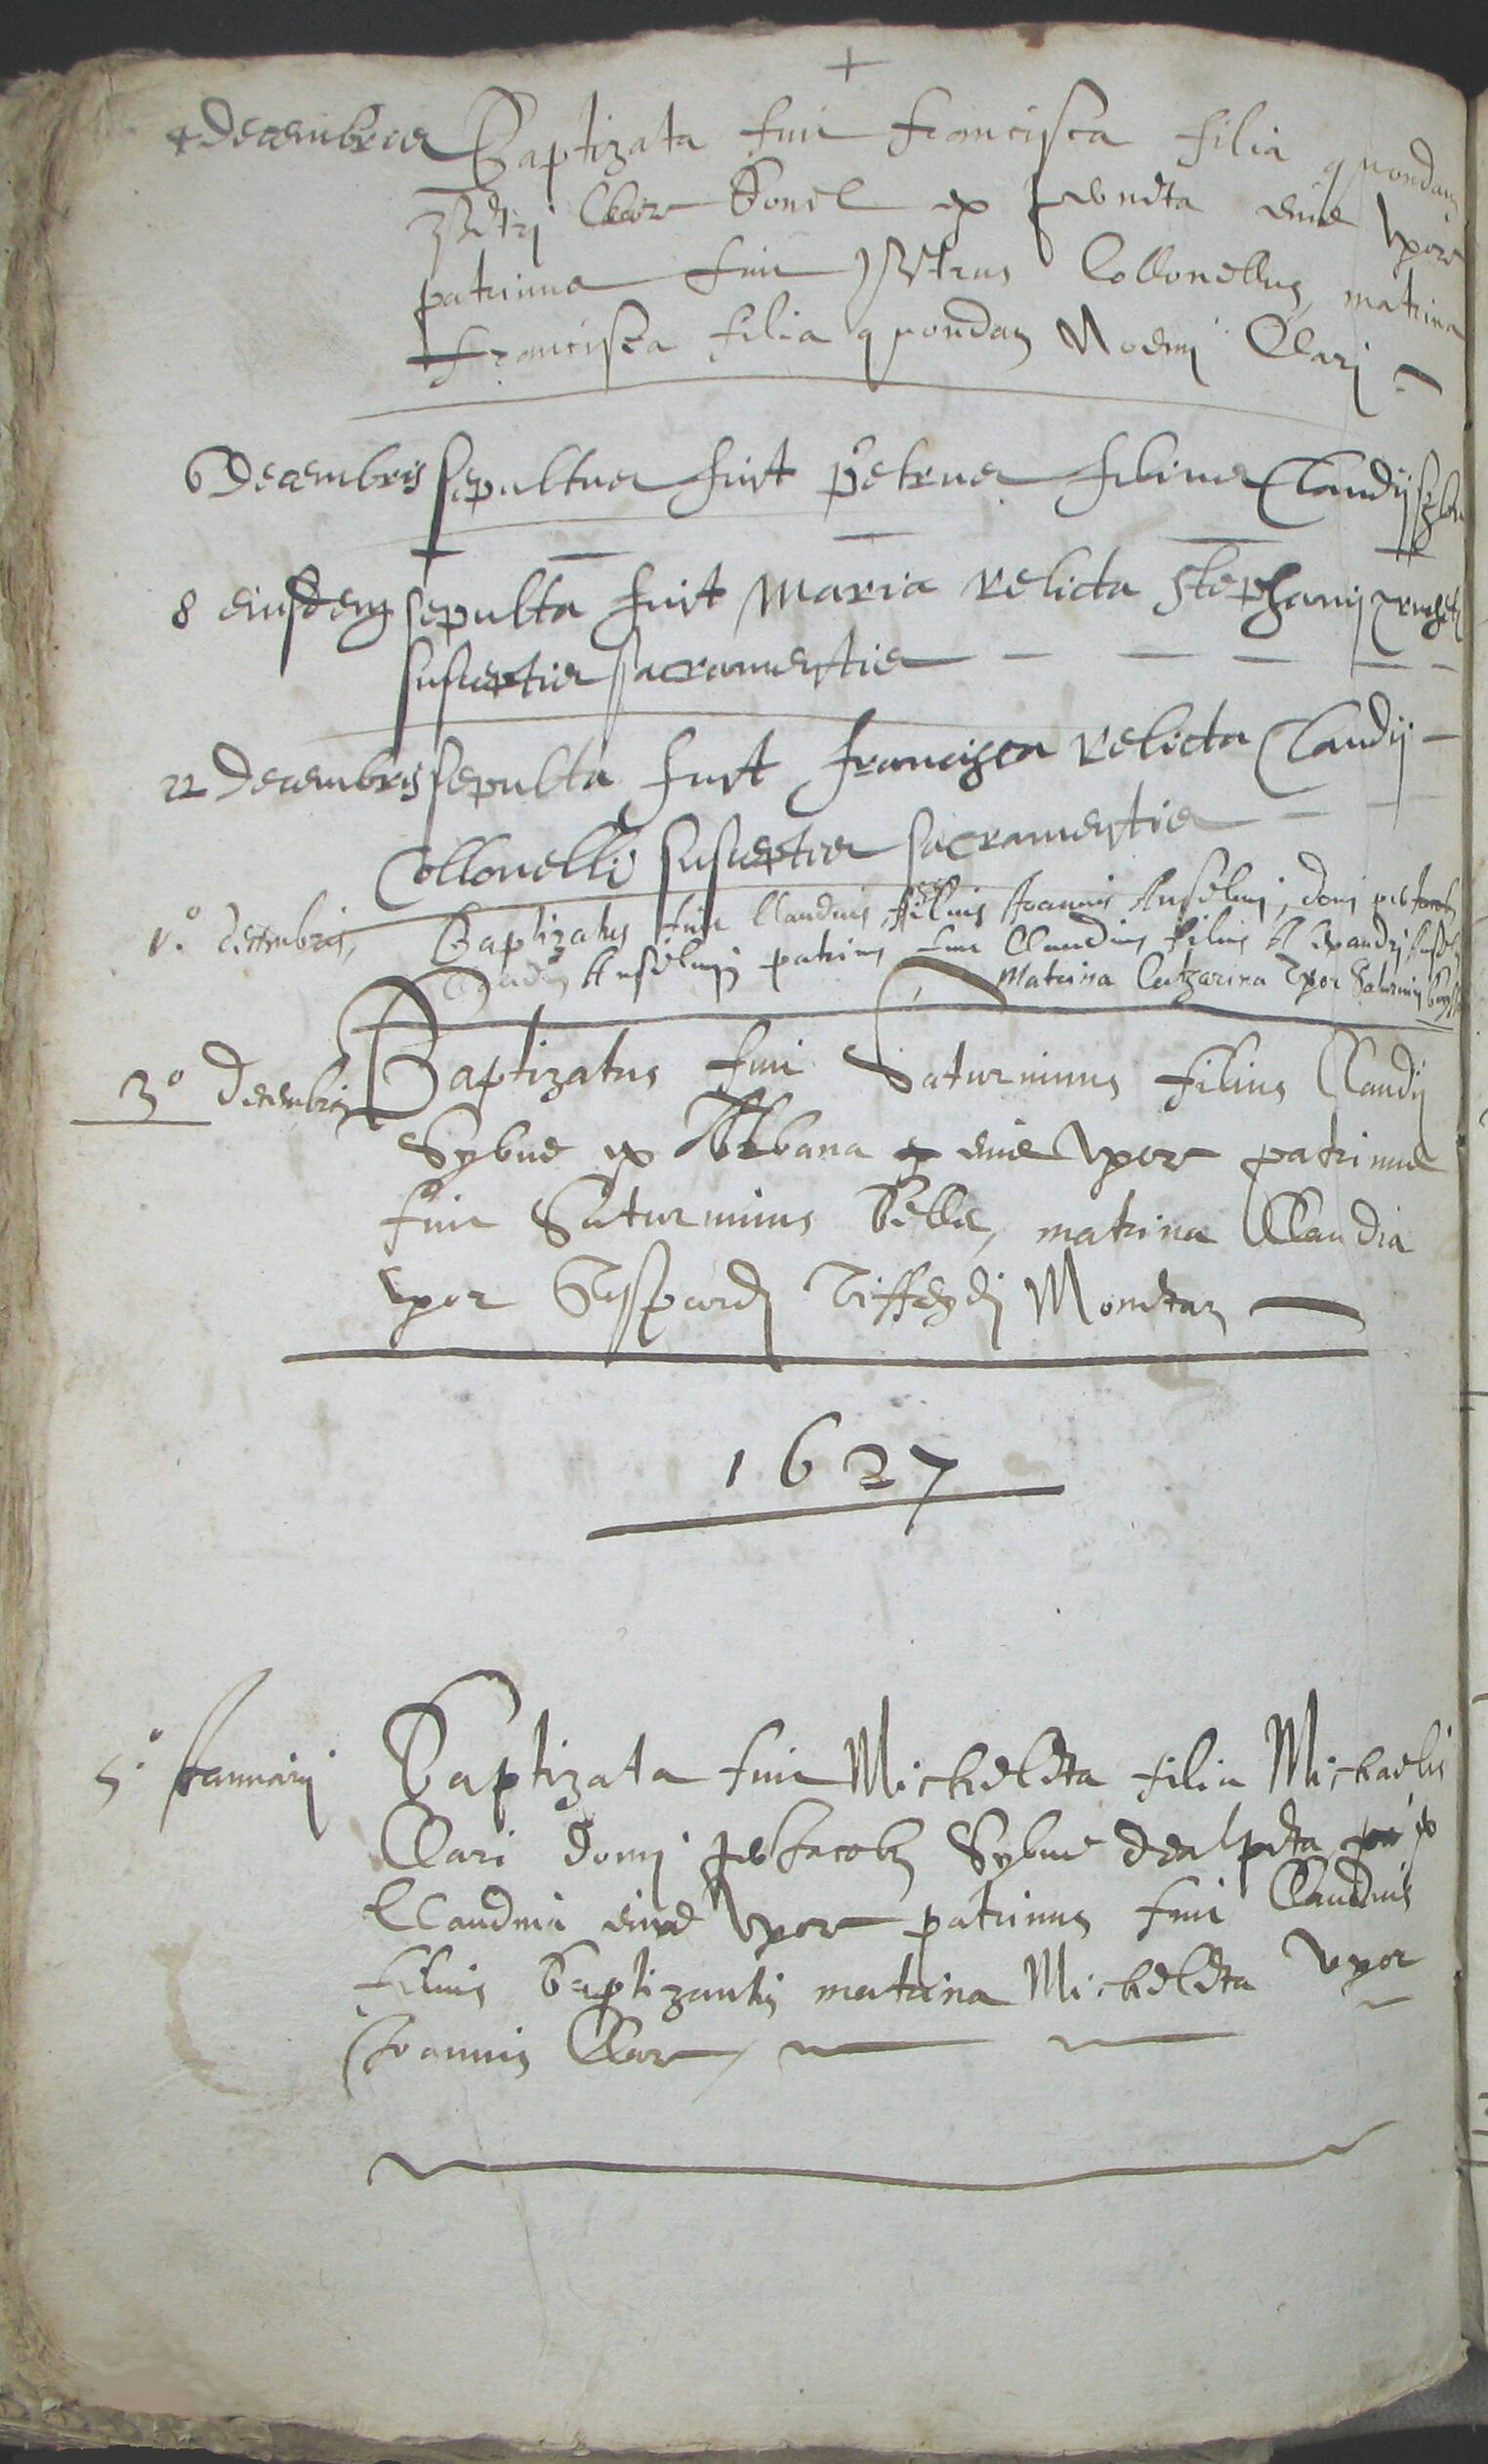 +
4 decembris Baptizata fuit francisca filia quondam
petri Clar Bonel ex eius uxor
patrinus fuit petrus Collonellus, matrina
francisca filia quondam Noemi Clari
6 Decembris sepultus fuit petrus filius Claudij
8 eiusdem sepulta fuit Maria relicta stephani
susceptis sacramentis
22 Decembris sepulta fuit francisca relicta Claudij
Collonelli susceptis sacramentis
1.º decembris, Baptizatus fuit Claudius filius Joannis Anselmi, domi
Anselmi patrinus fuit Claudius filius
Matrina Catharina uxor Saturnini
3º Decembris Baptizatus fuit Saturninus filius Claudij
Sybue ex Urbana eius uxor patrinus
fuit Saturninus Belle, matrina Claudia
uxor Gaspardi Tiffendi
1627
5º Januarij Baptizata fuit Micheleta filia Michaelis
Clari domi Jacobi Sybue ex
Claudia eius uxor patrinus fuit Claudius
filius Baptizantis matrina Micheleta uxor
Joannis Clar